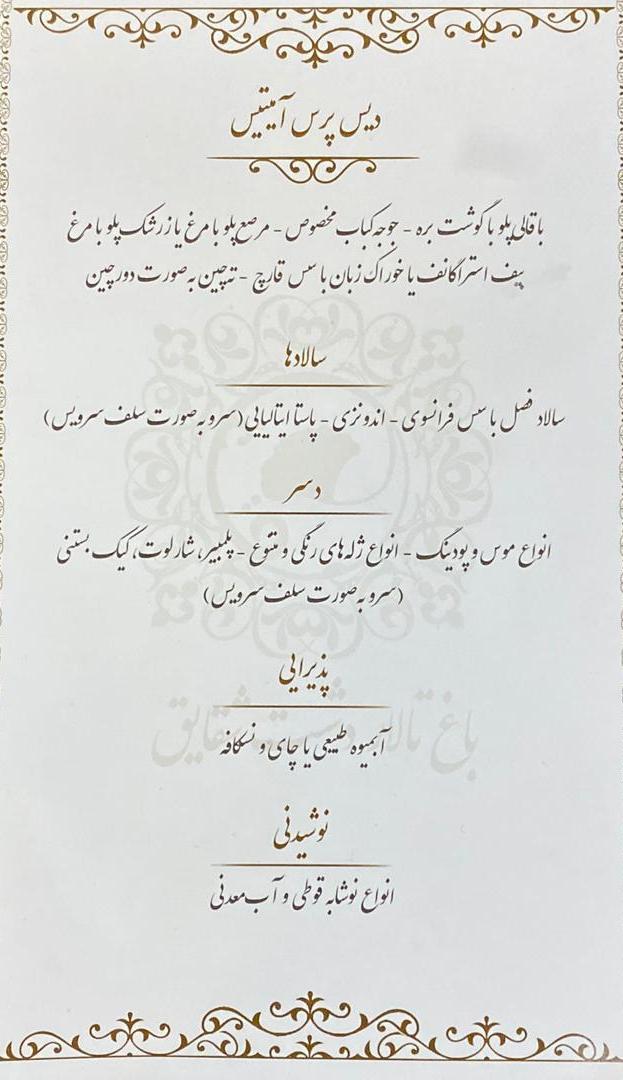 دیس پرس آمیتیس
باقالی پلو با گوشت بره - جوجه کباب مخصوص - مرصع پلو با مرغ یا زرشک پلو با مرغ
بیف استراگانف یا خوراک زبان با سس قارچ - ته چین به صورت دورچین
سالادها
سالاد فصل با سس فرانسوی - اندونزی - پاستا ایتالیایی (سرو به صورت سلف سرویس)
دسر
انواع موس و پودینگ - انواع ژله های رنگی و متنوع - پلمبیر، شارلوت، کیک بستنی
(سرو به صورت سلف سرویس)
پذیرایی
باغ تالار دشت شقایق
آبمیوه طبیعی یا چای و نسکافه
نوشیدنی
انواع نوشابه قوطی و آب معدنی